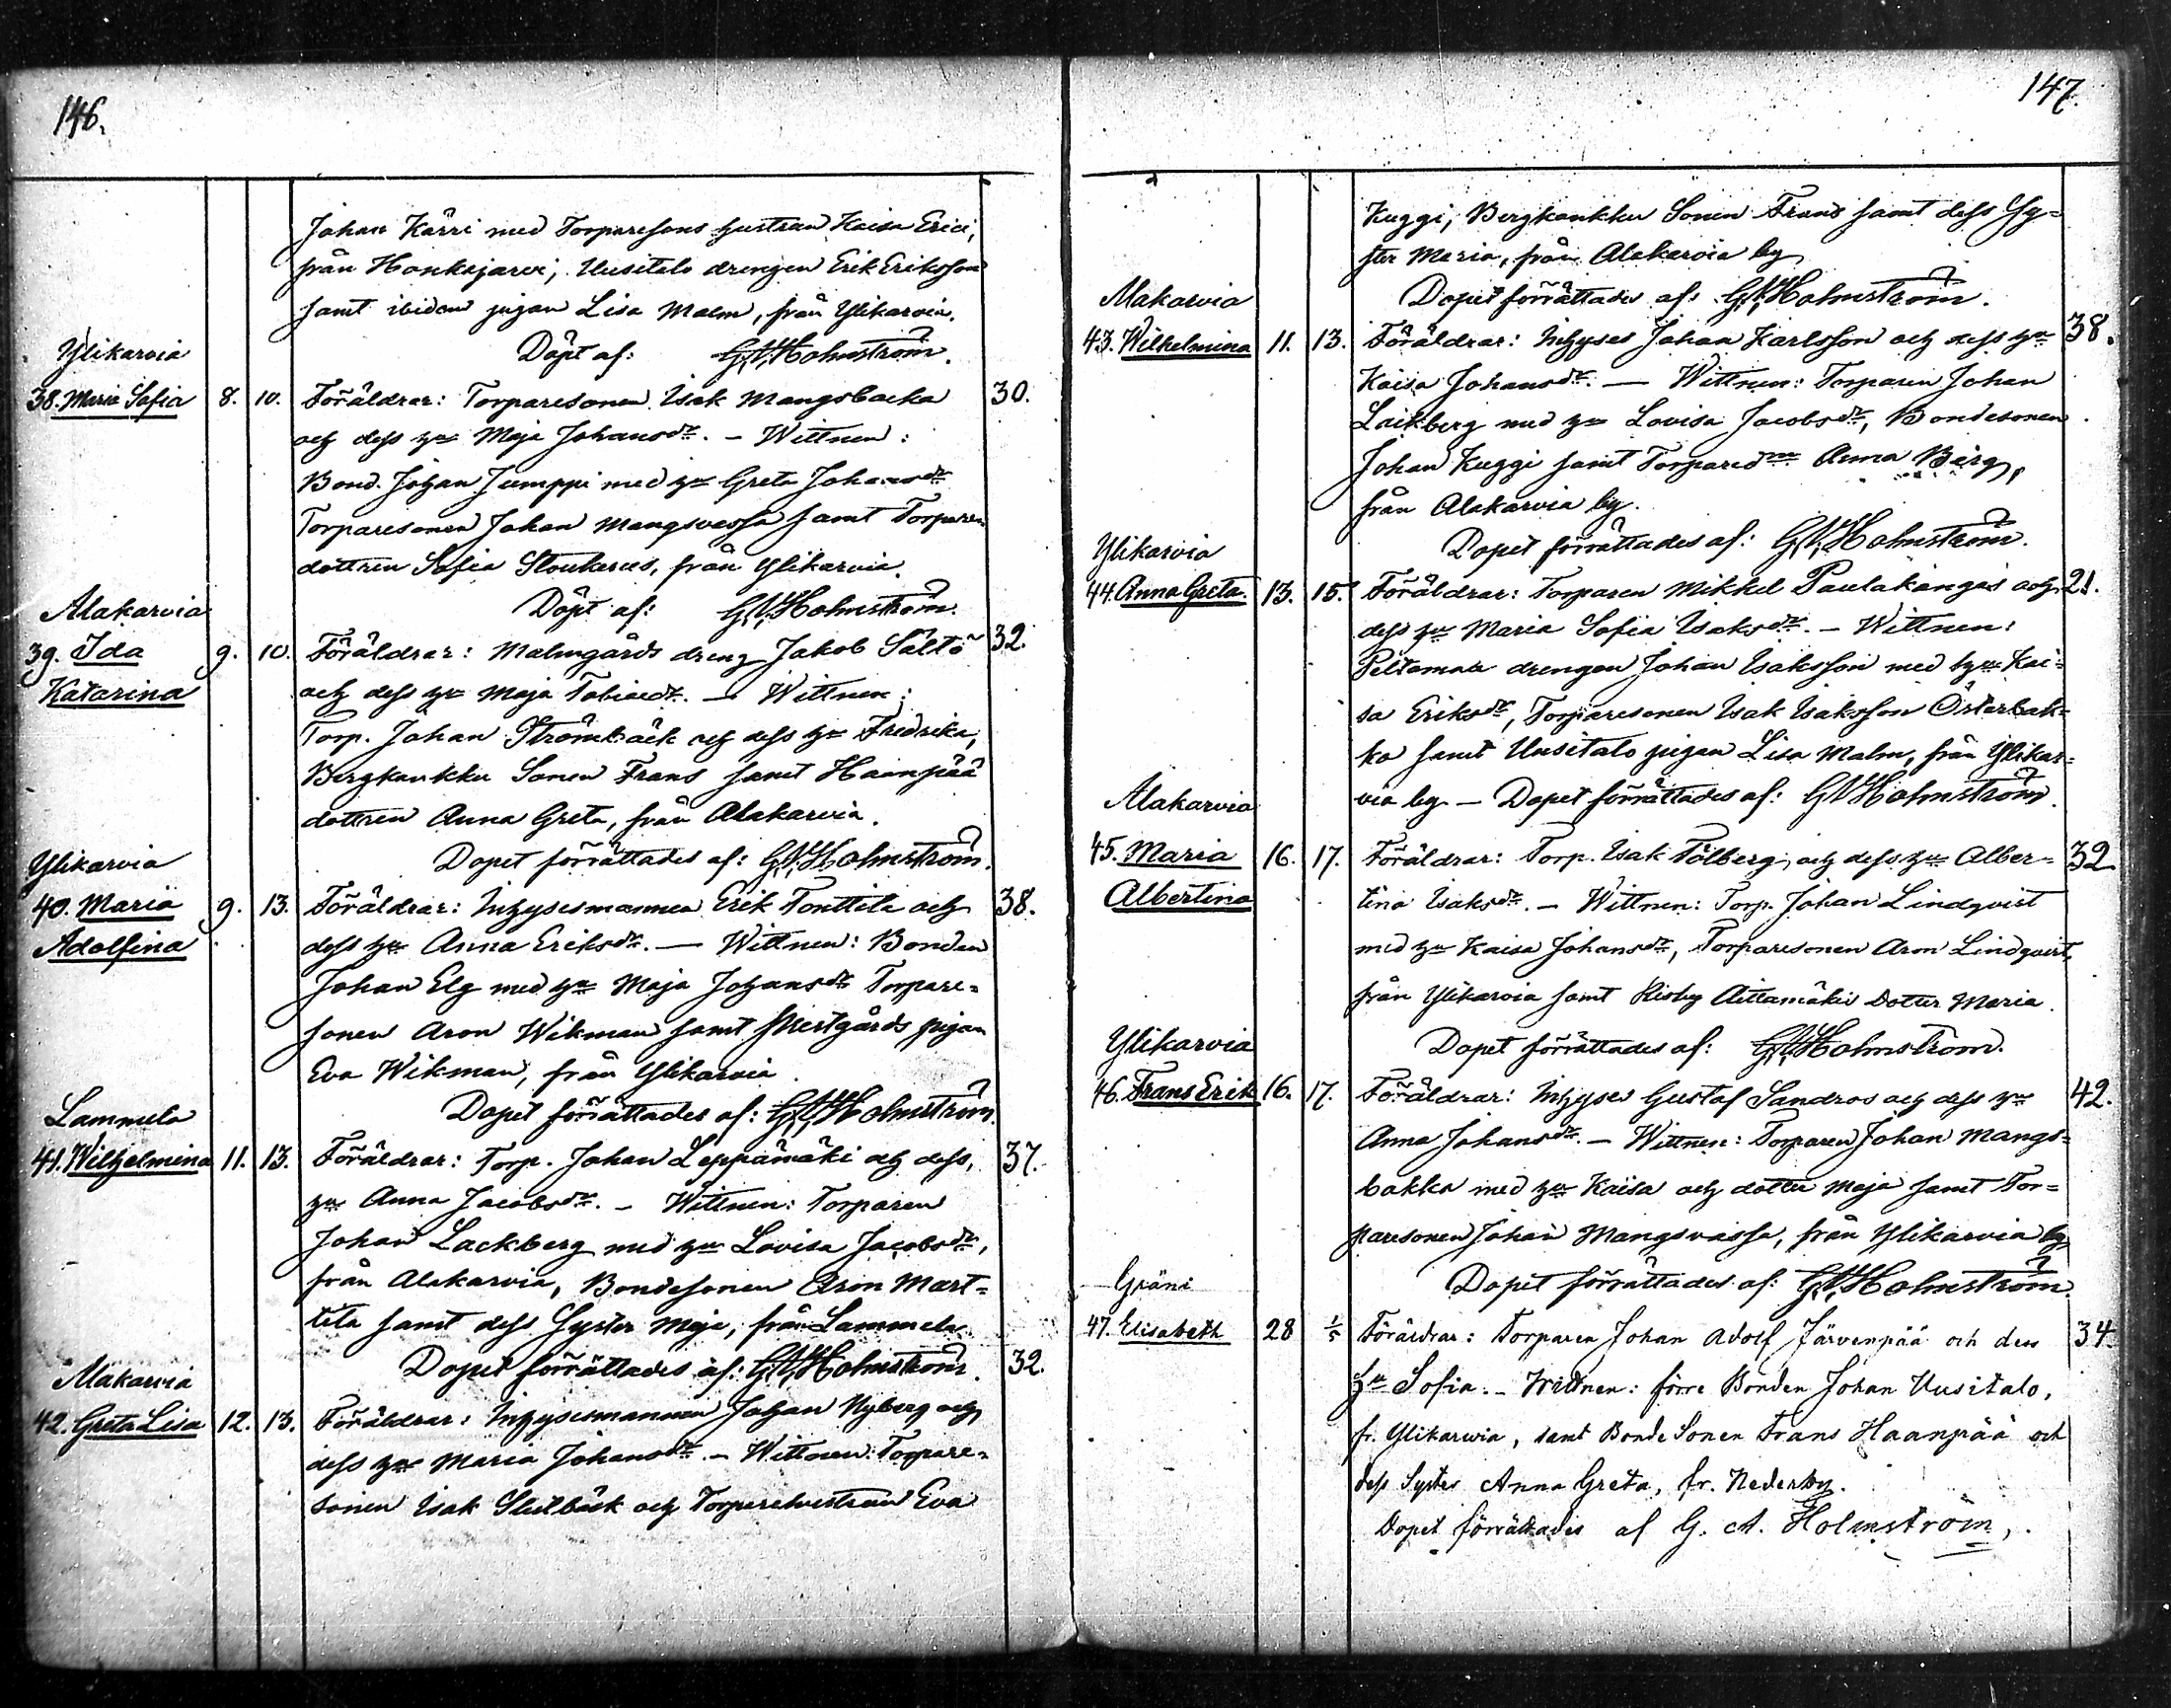 146.
Johan Kärri med Torparesons hustrun Kaisa Erici,
från Honkajarvi, Uusitalo drengen Erik Eriksson
samt ibidem pigan Lisa Malm, från Ylikarvia.
Döpt af: G.A.Holmström.
Ylikarvia
38. Maria Sofia 8. 10. Föräldrar: Torparesonen Isak Mangsbacka 30.
och dess hu Maja Johansdr. – Wittnen:
Bond. Johan Jumppi med hu Greta Johansdr
Torparesonen Johan Mangsvassa samt Torpare
dottren Sofia, från Ylikarvia.
Döpt af: G.A.Holmström.
Alakarvia
39. Ida 9. 10. Föräldrar: Malmgårds dreng Jakob Sältö 32.
Katarina och dess hu Maja Tobiasdr. – Wittnen:
Torp. Johan Strömbäck och dess hu Fredrika,
Bergkankku Sonen Frans samt Haanpää
dottren Anna Greta, från Alakarvia.
Dopet förrättades af: G.A.Holmström.
Ylikarvia
40. Maria 9. 13. Föräldrar: Inhysesmannen Erik Tonttila och 38.
Adolfina dess hu Anna Eriksdr. — Wittnen: Bonden
Johan Elg med hu Maja Johansdr Torpare-
sonen Aron Wikman samt pigan
Eva Wikman, från Ylikarvia.
Dopet förrättades af: G.A.Holmström
Lammela
41. Wilhelmina 11. 13. Föräldrar: Torp. Johan Leppämäki och dess, 37.
hu Anna Jacobsdr. – Wittnen: Torparen
Johan Lackberg med hu Lovisa Jacobsdr,
från Alakarvia, Bondesonen Aron Mart-
tila samt dess Syster Maja, från Lammela.
Dopet förrättades af: G.A.Holmström.
Alakarvia 32.
42. Greta Lisa 12. 13. Föräldrar: Inhysesmannen Johan Nyberg och
dess hu Maria Johansdr. – Wittnen: Torpare-
sonen Isak och Torparehustrun Eva
147.
Kuggi, Bergkankku Sonen Frans samt dess Sy-
ster Maria, från Alakarvia by
Dopet förrättades af: G.A.Holmström.
Alakarvia
43. Wilhelmina 11. 13. Föräldrar: Inhyses Johan Karlsson och dess hu 38.
Kaisa Johansdr. — Wittnen: Torparen Johan
Lackberg med hu Lovisa Jacobsdr, Bondesonen
Johan Kuggi samt Anna Berg,
från Alakarvia by.
Dopet förrättades af: G.A.Holmström.
Ylikarvia
44. Anna Greta. 13. 15. Föräldrar: Torparen Mikkel Paulakangas och 21.
dess hu Maria Sofia Isaksdr. – Wittnen:
Peltomaa drengen Johan Isaksson med hu Kai-
sa Eriksdr, Torparesonen Isak Isaksson Österbak-
ka samt Uusitalo pigan Lisa Malm, från Ylikar-
via by – Dopet förrättades af: G.A.Holmström.
Alakarvia
45. Maria 16. 17. Föräldrar: Torp. Isak Tölberg och dess hu Alber- 32
Albertina tina Isaksdr. – Wittnen: Torp. Johan Lindqvist
med hu Kaisa Johansdr, Torparesonen Aron Lindqvist,
från Ylikarvia samt Kisby Aittamäki Dotter Maria.
Dopet förrättades af: G.A.Holmström.
Ylikarvia
46. Frans Erik 16. 17. Föräldrar: Inhyses Gustaf Sandros och dess hu 42.
Anna Johansdr. – Wittnen: Torparen Johan Mangs-
bakka med hu Kaisa och dotter Maja samt Tor-
paresonen Johan Mangsvassa, från Ylikarvia by
Dopet förrättades af: G.A.Holmström.
Gräni
47. Elisabeth 28 1/5 Föräldrar: Torparen Johan Adolf Järvenpää och dess 34.
hu Sofia. – Wittnen: förre Bonden Johan Uusitalo,
fr. Ylikarwia, samt Bonde Sonen Frans Haanpää och
dess Syster Anna Greta, fr. Nederby.
Dopet förrättades af G. A. Holmström.